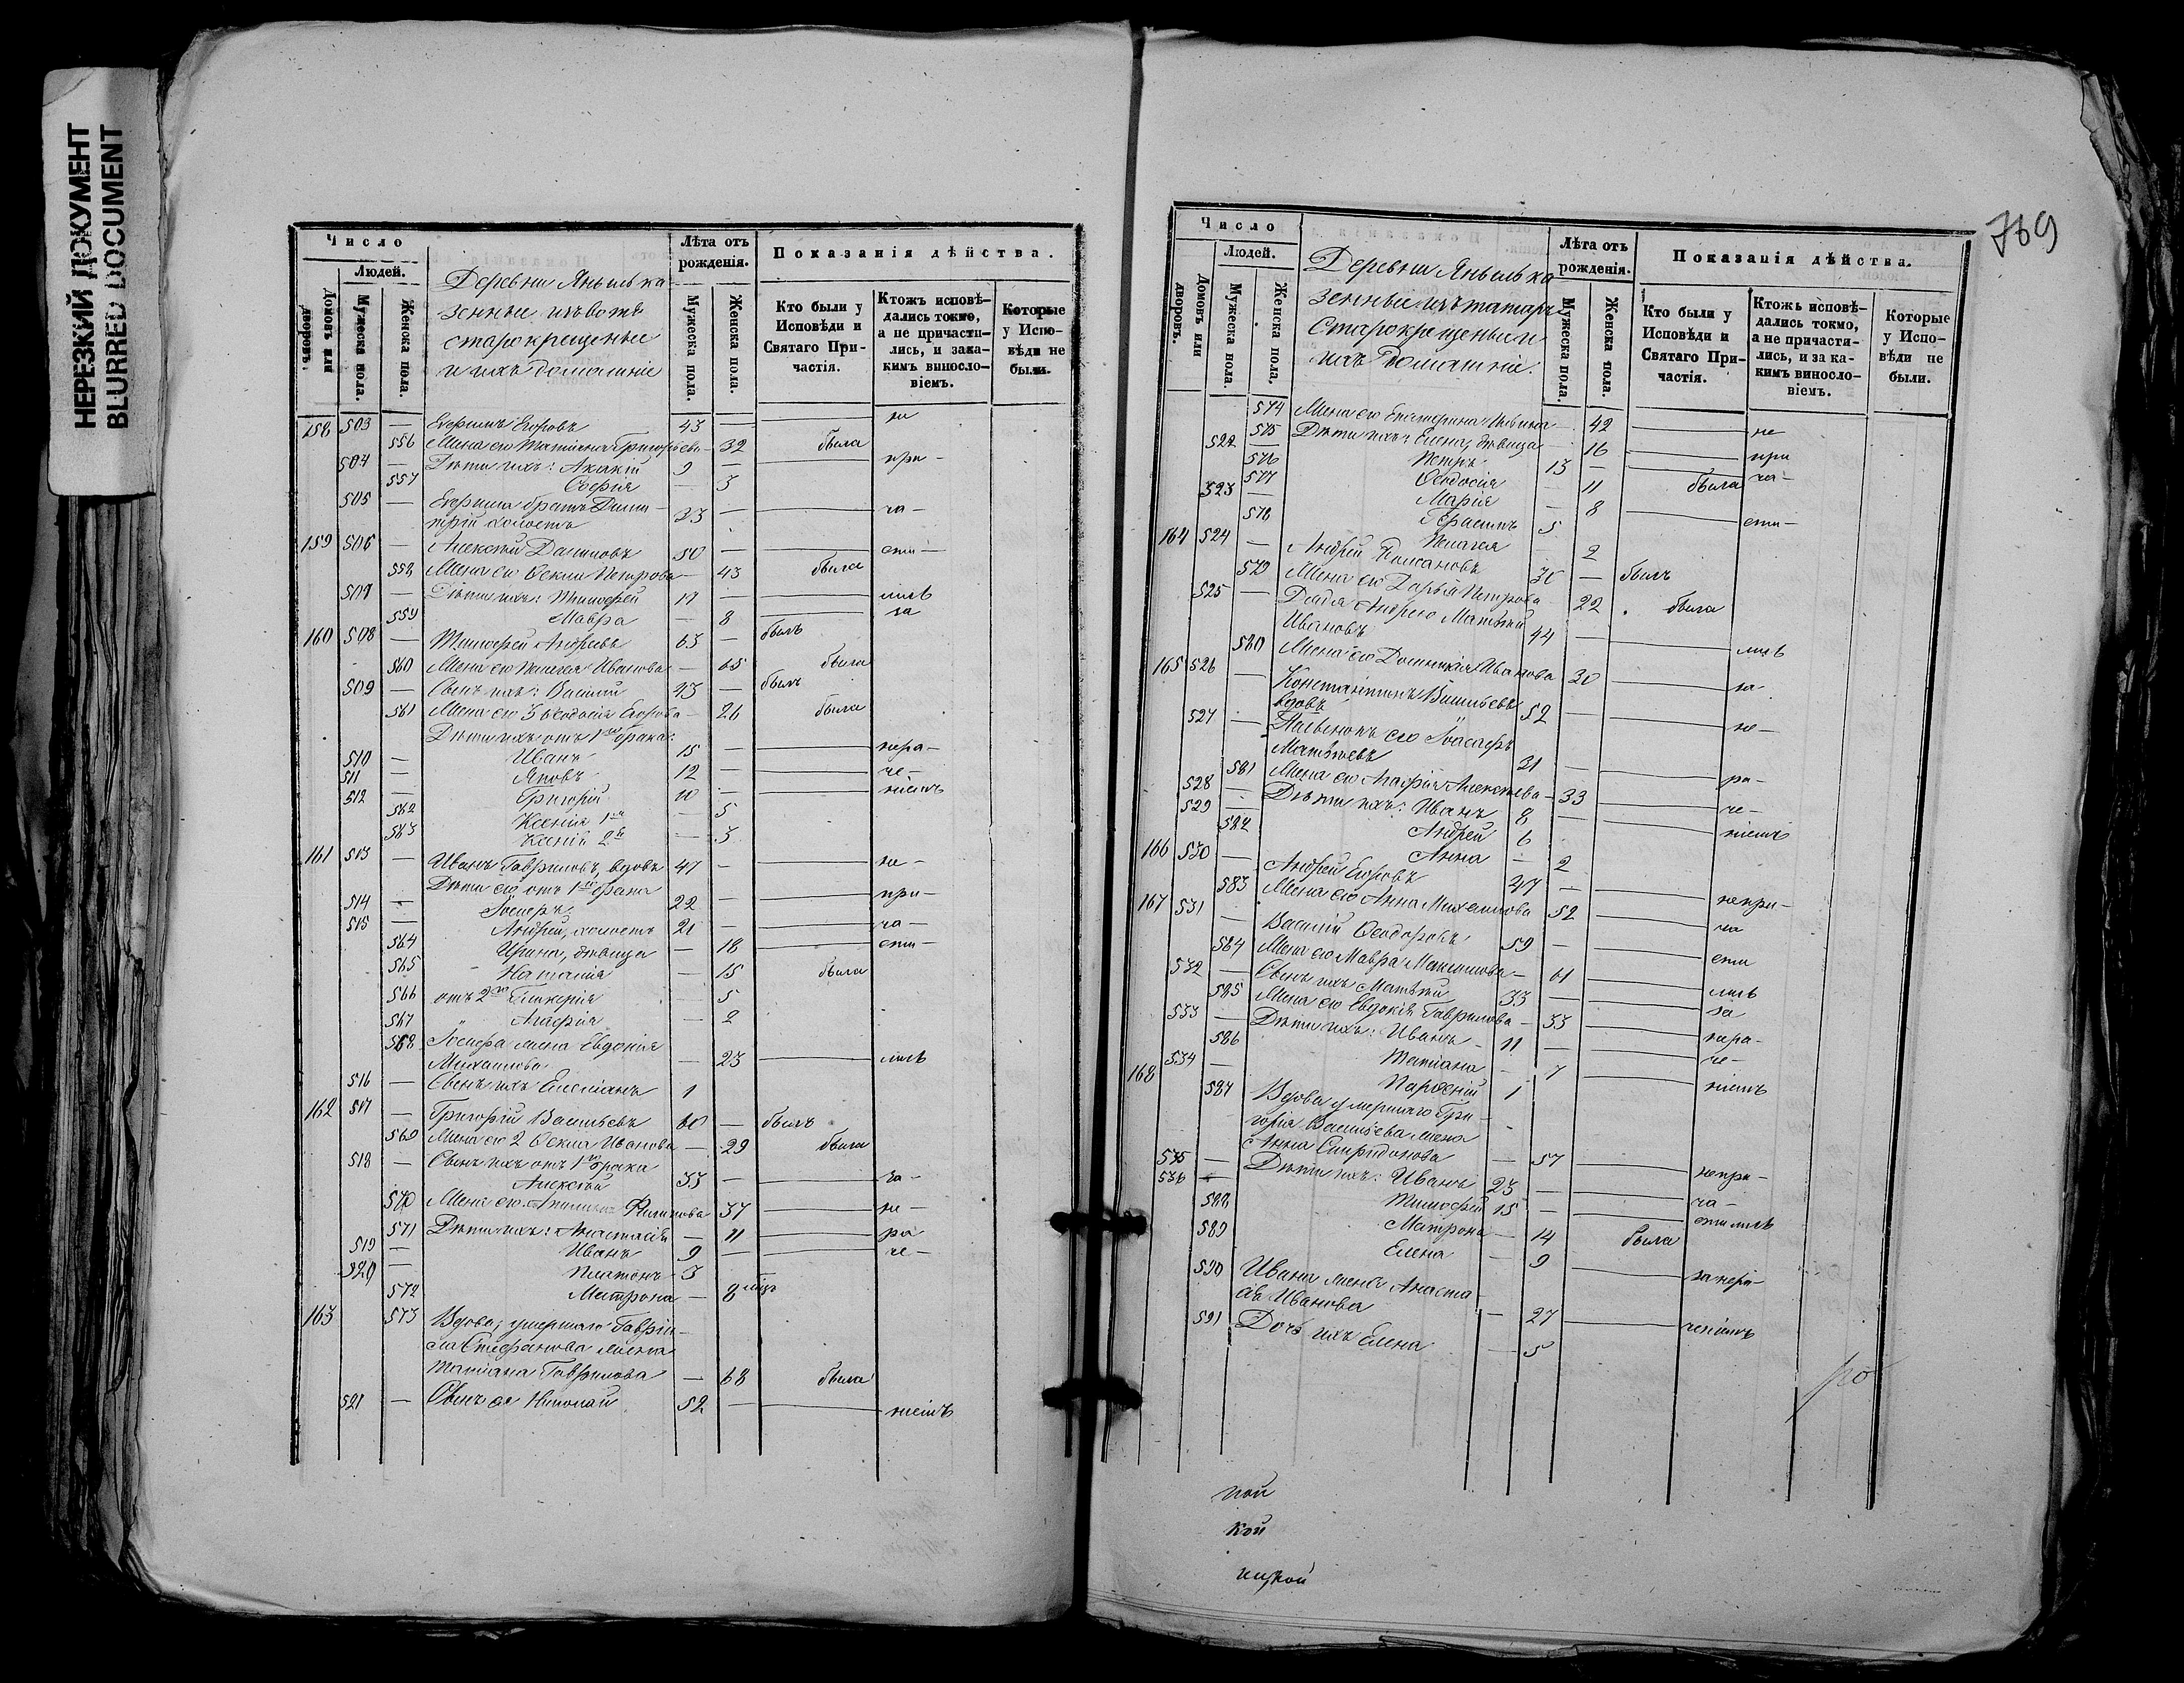 НЕРЕЗКИЙ ДОКУМЕНТ
BLURRED DOCUMENT
Число
Людей.
Домовъ или дворовъ.
Мужеска пола.
Женска пола.
Деревни Яныль ка-
зенные изъ вотя
старокрещенные
и ихъ домашніе
Лѣта отъ рожденія.
Мужеска пола.
Женска пола.
Показанія дѣйства.
Кто были у Исповѣди и Святаго Причастія.
Ктожъ исповѣдались токмо, а не причастились, и закакимъ винословіемъ.
Которые у Исповѣди не были.
158 503 — Ефремъ Егоровъ 43 —
556 Жена его Татіана Григорьева — 32 была
504 — Дѣти ихъ: Акакій 9 — при-
557 Софія — 3
505 — Ефрема братъ Дими-
трій холостъ 23 — ча-
159 506 — Алексѣй Даниловъ 50 — сти-
558 Жена его Ѳекла Петрова — 43 была
507 — Дѣти ихъ: Тимофей — лись
559 Мавра — 8 за
160 508 — Тимофей Андреевъ 63 — былъ
560 Жена его Пелагея Иванова — 65 была
509 — Сынъ ихъ: Василій 43 — былъ
561 Жена его 3 Ѳеодосія Егорова — 26 была
Дѣти ихъ отъ 1го брака:
510 — Иванъ 15 — нера-
511 — Яковъ 12 — че-
512 — Григорій 10 — ніемъ
562 Ксенія 1я — 5
563 Ксенія 2я — 3
161 513 — Иванъ Гавриловъ, вдовъ 47 — не-
Дѣти его отъ 1го брака
514 — Іосифъ 22 — при-
515 — Андрей, холостъ — ча-
564 Ирина, дѣвица — 18 сти-
565 Наталія — 15 была
566 отъ 2го Гликерія — 5
567 " Агафія — 2
568 Іосифа жена Евдокія
Михаилова — 23 лись
516 — Сынъ ихъ Емеліанъ 1
162 517 — Григорій Васильевъ 60 — былъ
569 Жена его 2 Ѳекла Иванова — 29 была
518 — Сынъ ихъ отъ 1го брака
Алексѣй 33 — за-
570 Жена его Филипова 37 не-
571 Дѣти ихъ: Анастасія — 11 ра
519 — Иванъ 9 — че-
520 — Платонъ 3
572 Матрона — 8 мцъ
163 573 Вдова, умершаго Гаврі-
ла Стефанова жена
Татіана Гаврилова — 68 была
521 — Сынъ ея Николай 52 — ніемъ
769
Число
Людей.
Домовъ или дворовъ.
Мужеска пола.
Женска пола.
Деревни Яныль ка-
зенные изъ татаръ
Старокрещеные и
ихъ домашніе.
Лѣта отъ рожденія.
Мужеска пола.
Женска пола.
Показанія дѣйства.
Кто были у Исповѣди и Святаго Причастія.
Ктожъ исповѣдались токмо, а не причастились, и за какимъ винословіемъ.
Которые у Исповѣди не были.
574 Жена его Екатерина — 42 не
575 Дѣти ихъ: Елена, дѣвица 16 при
522 — Петръ 13 —
576 Ѳеодосія — 11 была ча-
577 Марія — 8 сти-
523 — Герасимъ 5
578 Пелагея — 2
164 524 — Андрей Романовъ — былъ
579 Жена его Дарья Петрова 22 была
525 — Дядя Андрею Матѳей
Ивановъ 44 — лись
580 Жена его Домникія Иванова 30 за
165 526 — Константинъ Васильевъ
вдовъ 52 — не-
527 — Пасынокъ его Іоасафъ
Матѳеевъ 31 — ра-
581 Жена его Агафія Алексѣева — 33 че-
528 — Дѣти ихъ: Иванъ 8 — ніемъ
529 — Андрей 6
582 Анна — 2
166 530 — Андрей Егоровъ 47 — непри-
583 Жена его Анна Михаилова 52 ча
167 531 — Василій Ѳеодоровъ 59 — сти
584 Жена его Мавра Максимова — 61 лись
532 — Сынъ ихъ Матѳей 33 — за
585 Жена его Евдокія Гаврилова — 33 нера-
533 — Дѣти ихъ: Иванъ 11 — че-
586 Татіана — 7 ніемъ
534 — Парѳеній 1
168 587 Вдова умершаго Гри-
горія Васильева жена
Анна Спиридонова — 57 непри-
535 — Дѣти ихъ: Иванъ 23 — ча-
536 — Тимофей 15 — стились
588 Матрона — 14 была
589 Елена — 9 занера-
590 Ивана жена Анаста-
сія Иванова — 27 ченіемъ
591 Дочь ихъ Елена — 5
ной
кой